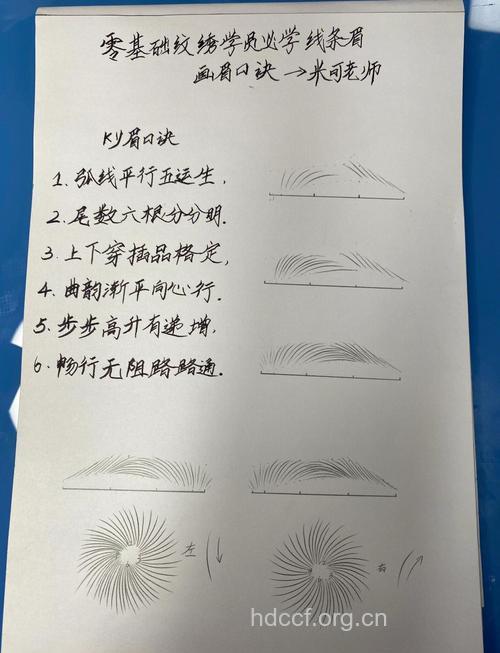 零基础纹绣学员必学线条眉
画眉口诀→米可老师
KY眉口诀
1、弧线平行五运生,
2、尾数六根分分明.
3、上下穿插品格定,
4、曲韵渐平同心行.
5、步步高升有递增,
6、畅行无阻路路通.
左
右
hdccf.org.cn